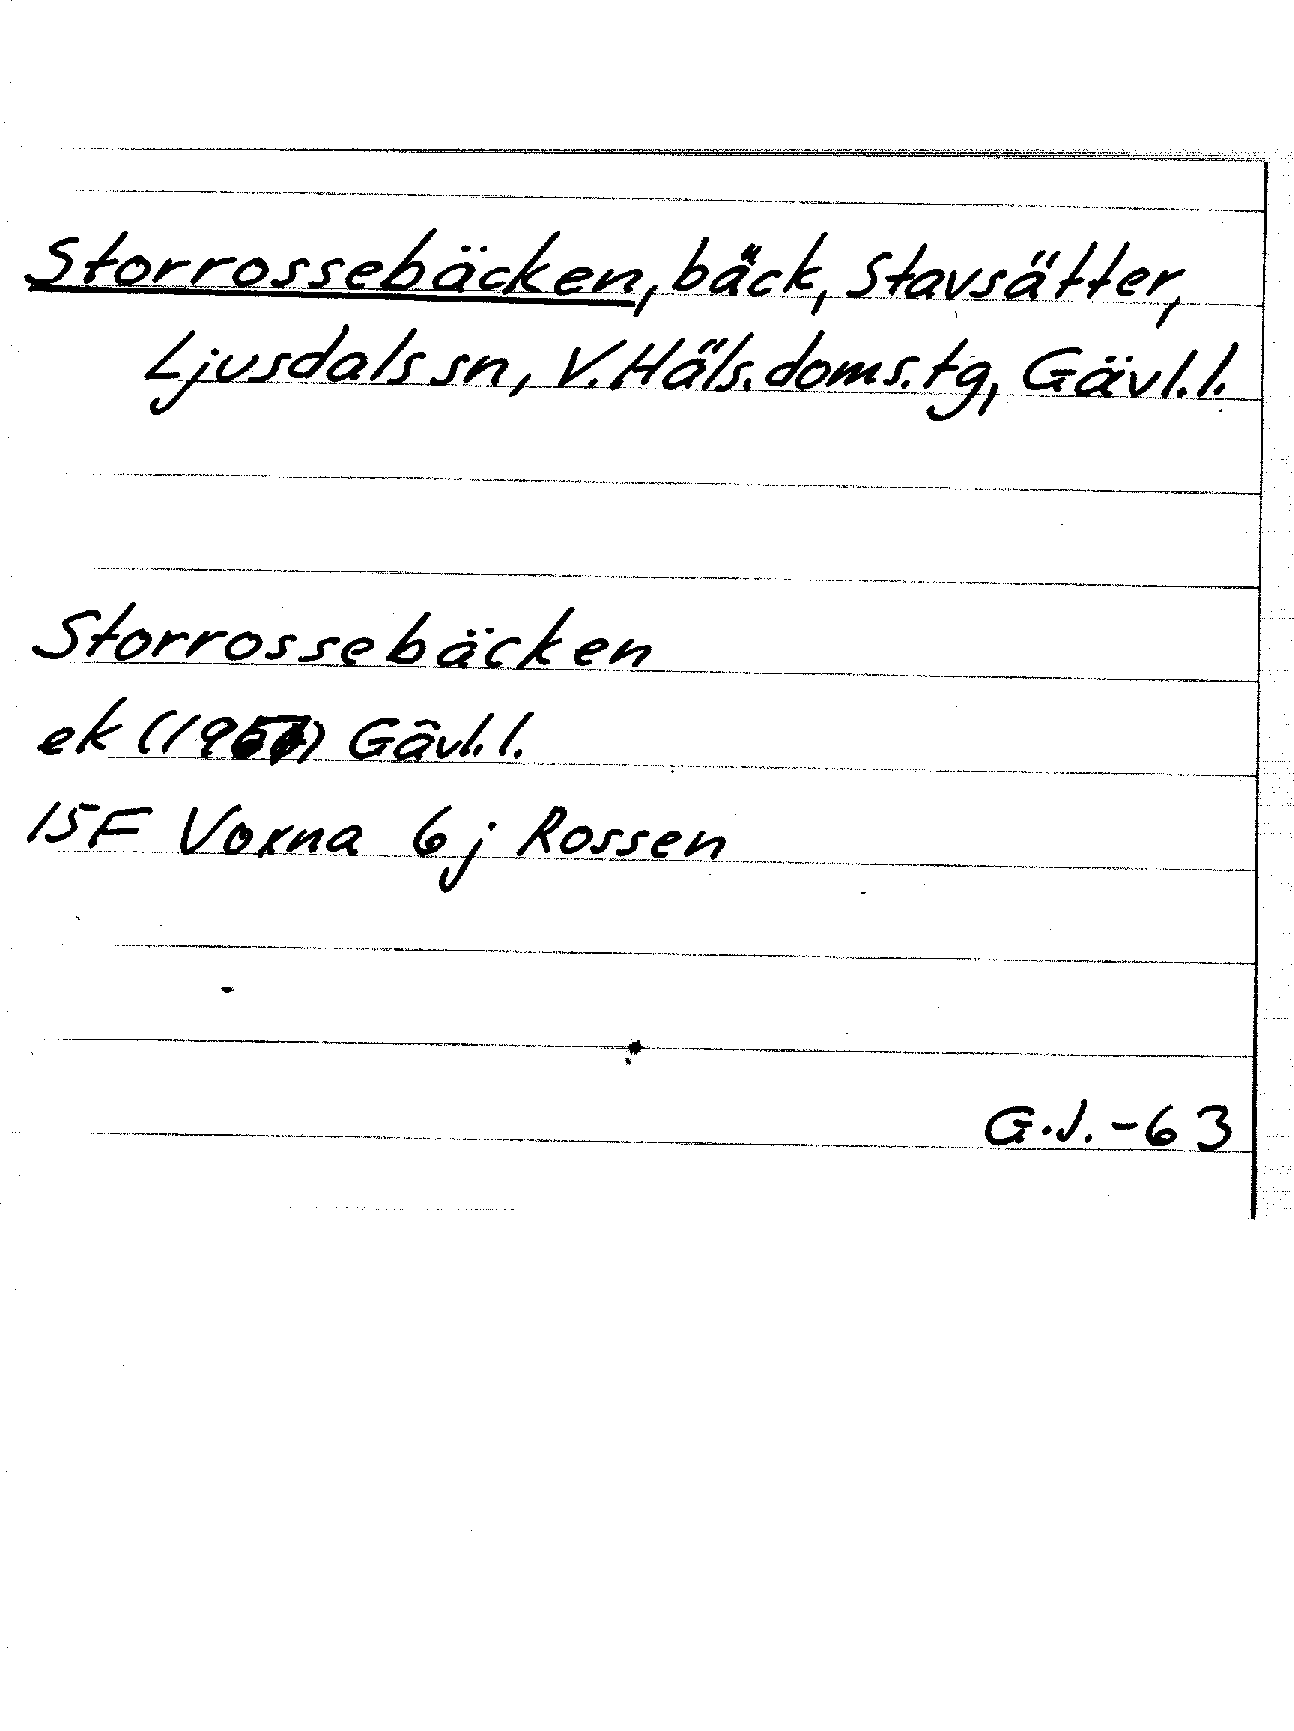 Storrossebäcken, bäck, Stavsätter,
Ljusdals sn, V. Häls. doms. tg, Gävl. l.
Storrossebäcken
ek Gävl. l.
15F Voxna 6j Rossen
G.J. -63